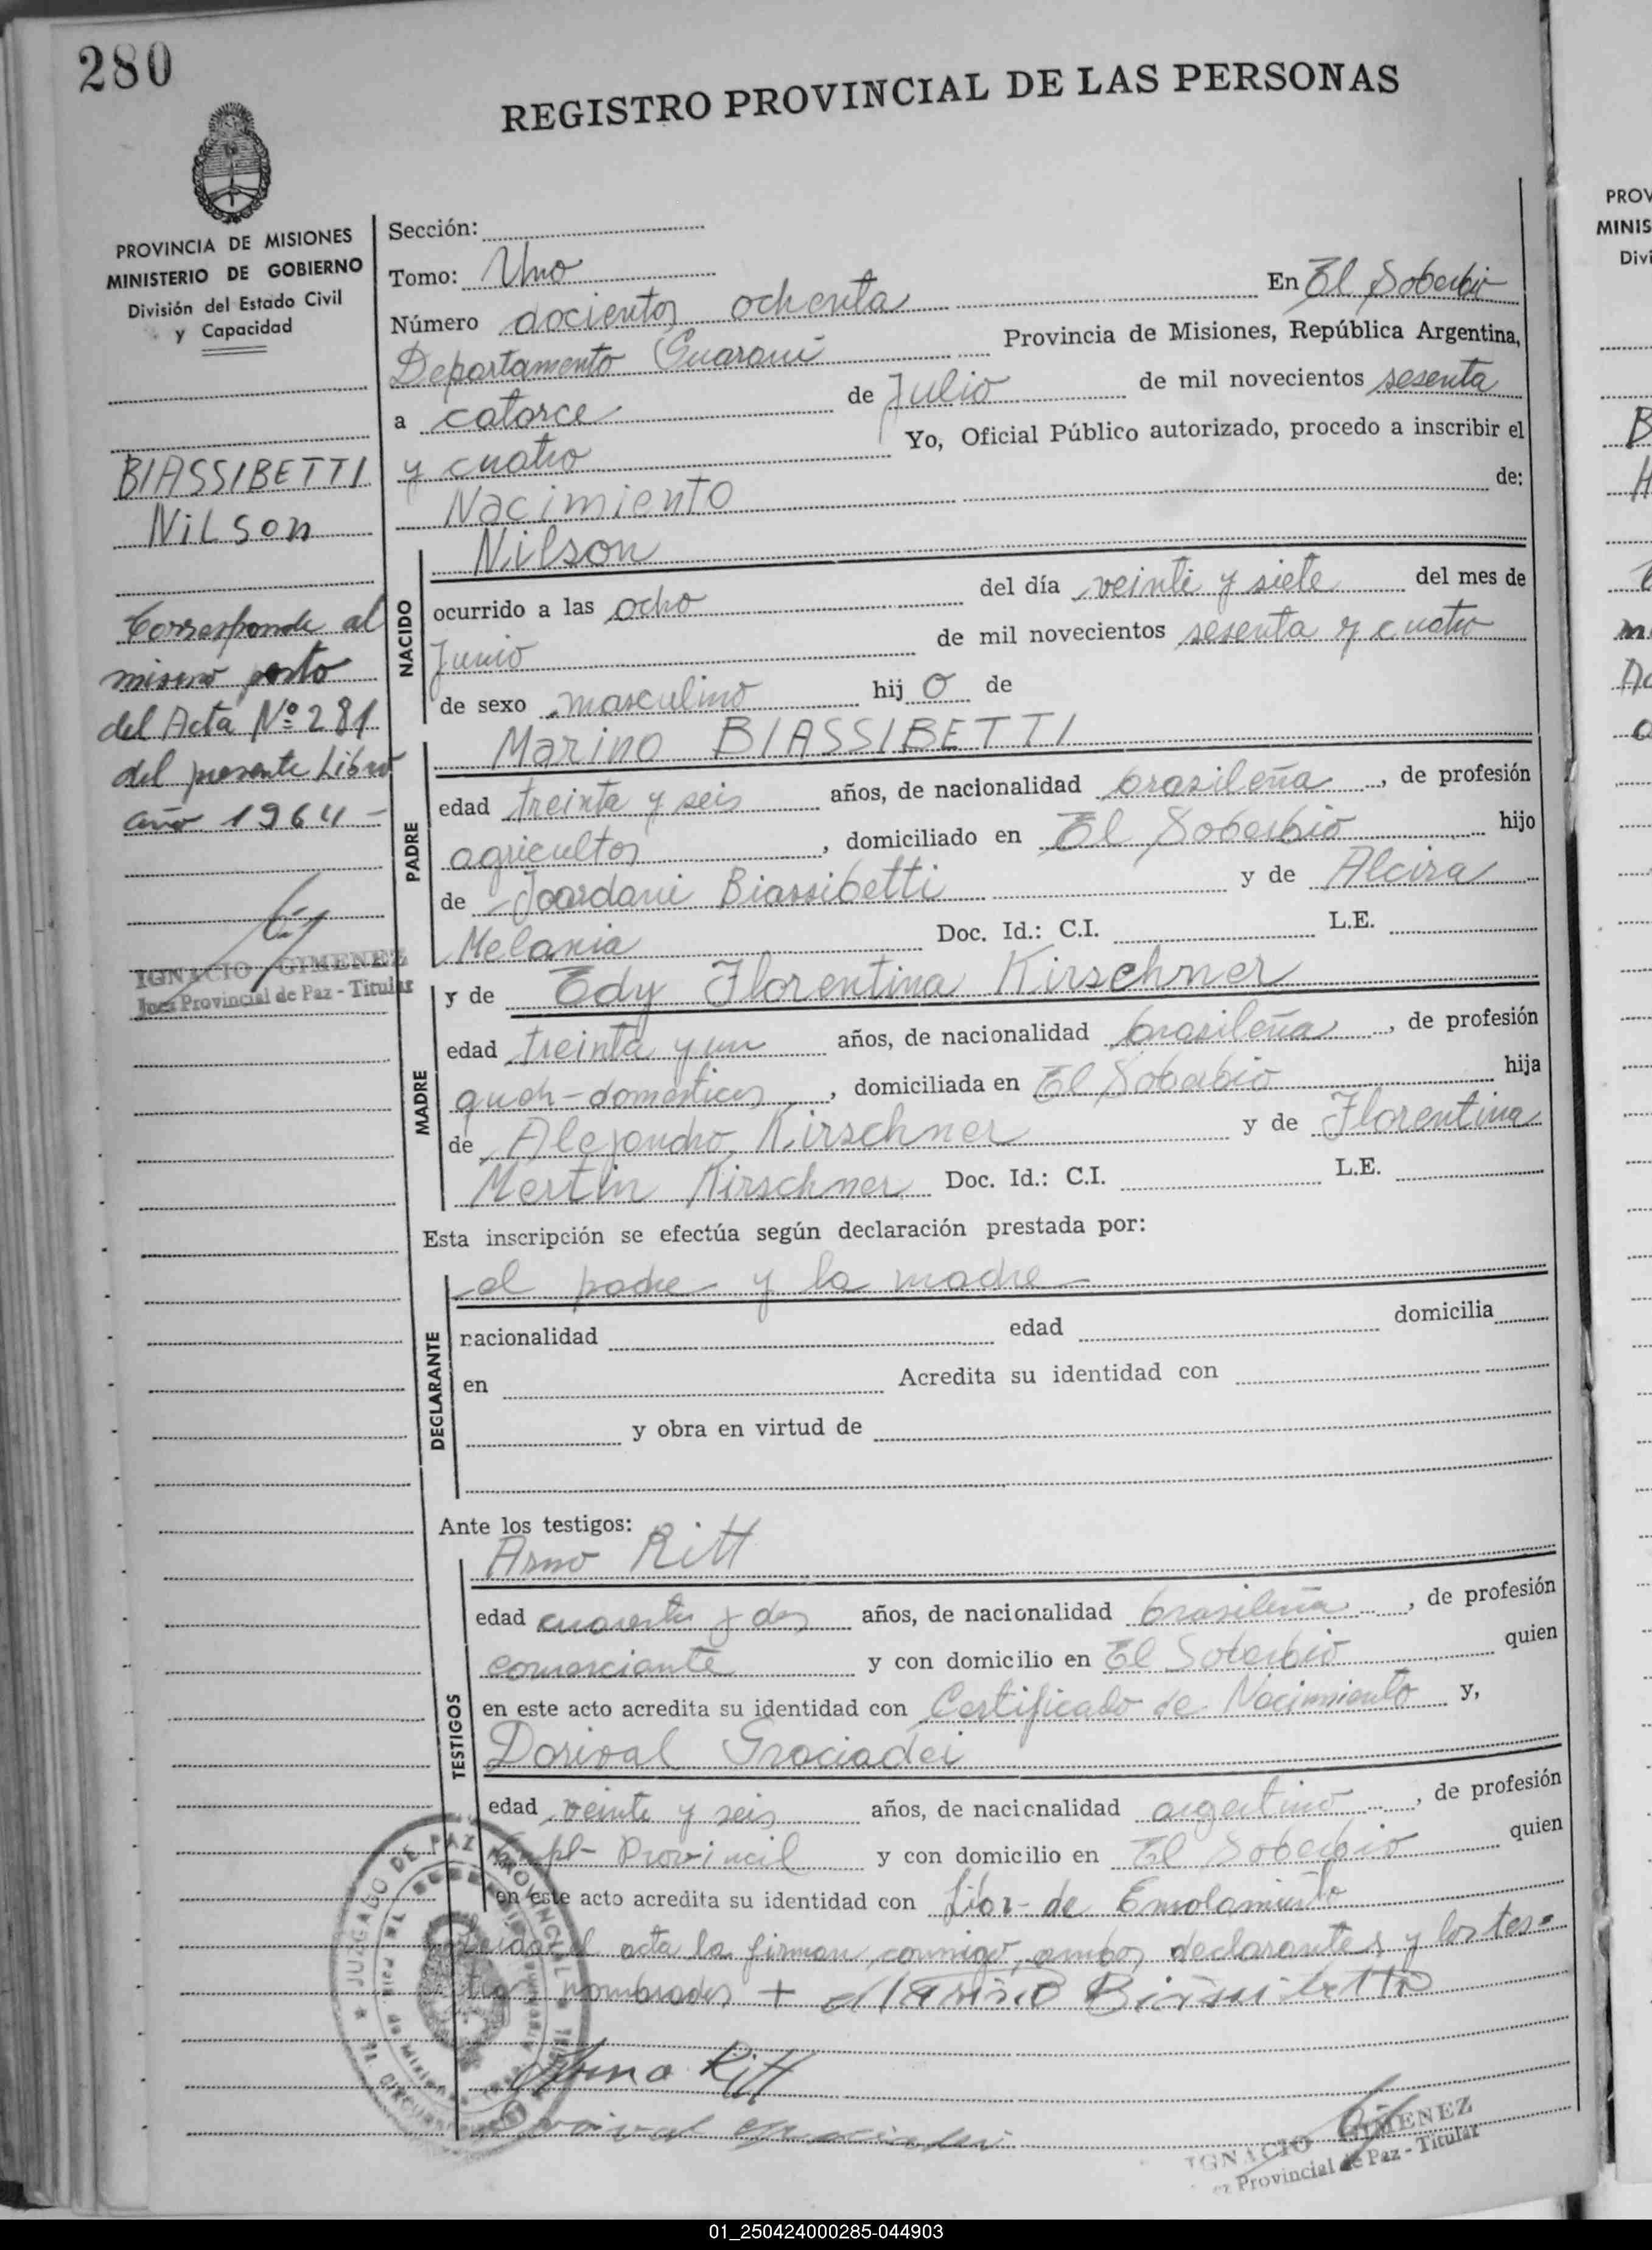 280
REGISTRO PROVINCIAL DE LAS PERSONAS
PROVINCIA DE MISIONES
MINISTERIO DE GOBIERNO
División del Estado Civil
y Capacidad
BIASSIBETTI
NILSON
Corresponde al
mismo parto
del Acta Nº 281
del presente Libro
año 1964 -
IGNACIO GIMENEZ
Juez Provincial de Paz - Titular
Sección:
Tomo: Uno
Número docientos ochenta En El Soberbio
Departamento Guaraní Provincia de Misiones, República Argentina,
a catorce de Julio de mil novecientos sesenta
y cuatro Yo, Oficial Público autorizado, procedo a inscribir el
Nacimiento de:
NACIDO
Nilson
ocurrido a las ocho del día veinte y siete del mes de
Junio de mil novecientos sesenta y cuatro
de sexo masculino hij o de
PADRE
Marino BIASSIBETTI
edad treinta y seis años, de nacionalidad brasileña, de profesión
agricultor, domiciliado en El Soberbio hijo
de Joardani Biassibetti y de Alcira
Melania Doc. Id.: C.I. L.E.
MADRE
y de Edy Florentina Kirschner
edad treinta y un años, de nacionalidad brasileña, de profesión
queh-domesticos, domiciliada en El Soberbio hija
de Alejandro Kirschner y de Florentina
Mertin Kirschner Doc. Id.: C.I. L.E.
Esta inscripción se efectúa según declaración prestada por:
DECLARANTE
el padre y la madre
nacionalidad edad domicilia
en Acredita su identidad con
y obra en virtud de
Ante los testigos:
TESTIGOS
Arno Ritt
edad cuarenta y dos años, de nacionalidad brasileña, de profesión
comerciante y con domicilio en El Soberbio quien
en este acto acredita su identidad con Certificado de Nacimiento y,
Dorival Graciadei
edad veinte y seis años, de nacionalidad argentino, de profesión
Empl- Provincil y con domicilio en El Soberbio quien
en este acto acredita su identidad con Libr- de Enrolamiento
Leida el acta la firman conmigo, ambos declarantes y los tes=
tigos nombrados + Marino
Arno Ritt
Dorival
JUZGADO DE PAZ PROVINCIAL
IGNACIO GIMENEZ
ez Provincial de Paz - Titular
PROV
MINIS
Divi
01_250424000285-044903